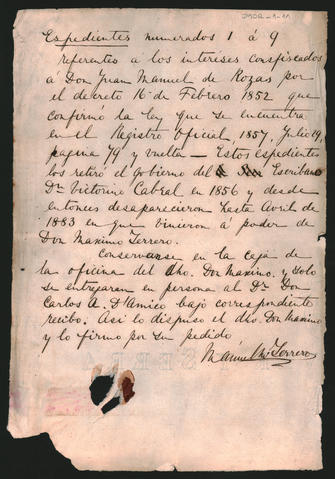 JMDR_1_11
Expedientes numerados 1 á 9
referentes á los intereses confiscados
á Don Juan Manuel de Rozas por
el decreto 16 de Febrero 1852 que
confirmó la ley que se encuentra
en el Registro Oficial, 1857, Julio 29,
pagina 79 y vuelta — Estos espedientes
los retiró el Gobierno del Escribano
Dr Victorino Cabral en 1856 y desde
entonces desaparecieron hasta Avril de
1883 en que vinieron á poder de
Don Maximo Terrero.
Conservanse en la caja de
la oficina del dho. Don Maximo, y solo
se entregaran en persona al Dr Don
Carlos A. D'Amico bajo correspondiente
recibo. Asi lo dispuso el dho. Don Maximo
y lo firmo por su pedido
Manuel Terrero